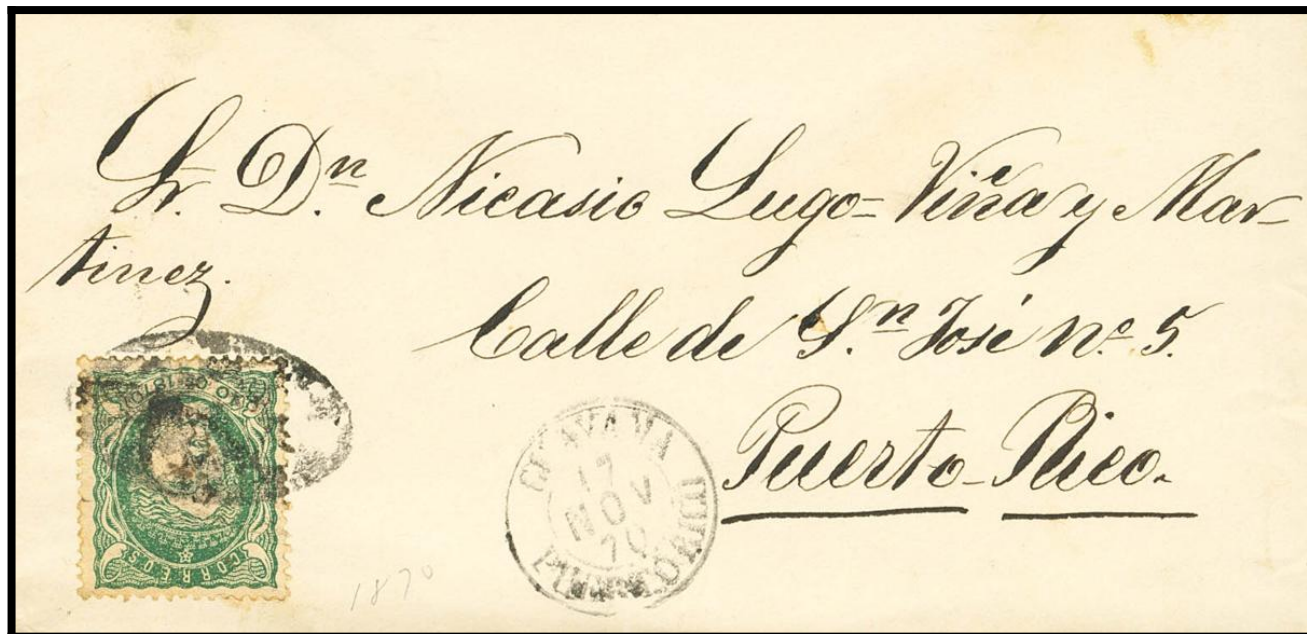 Sr. Dn. Nicasio Lugo=Viña y Mar-
tinez.
Calle de Sn. José No. 5.
Puerto-Rico.
GUAYAMA
17
NOV
70
PUERTO RICO
CORREOS
1870